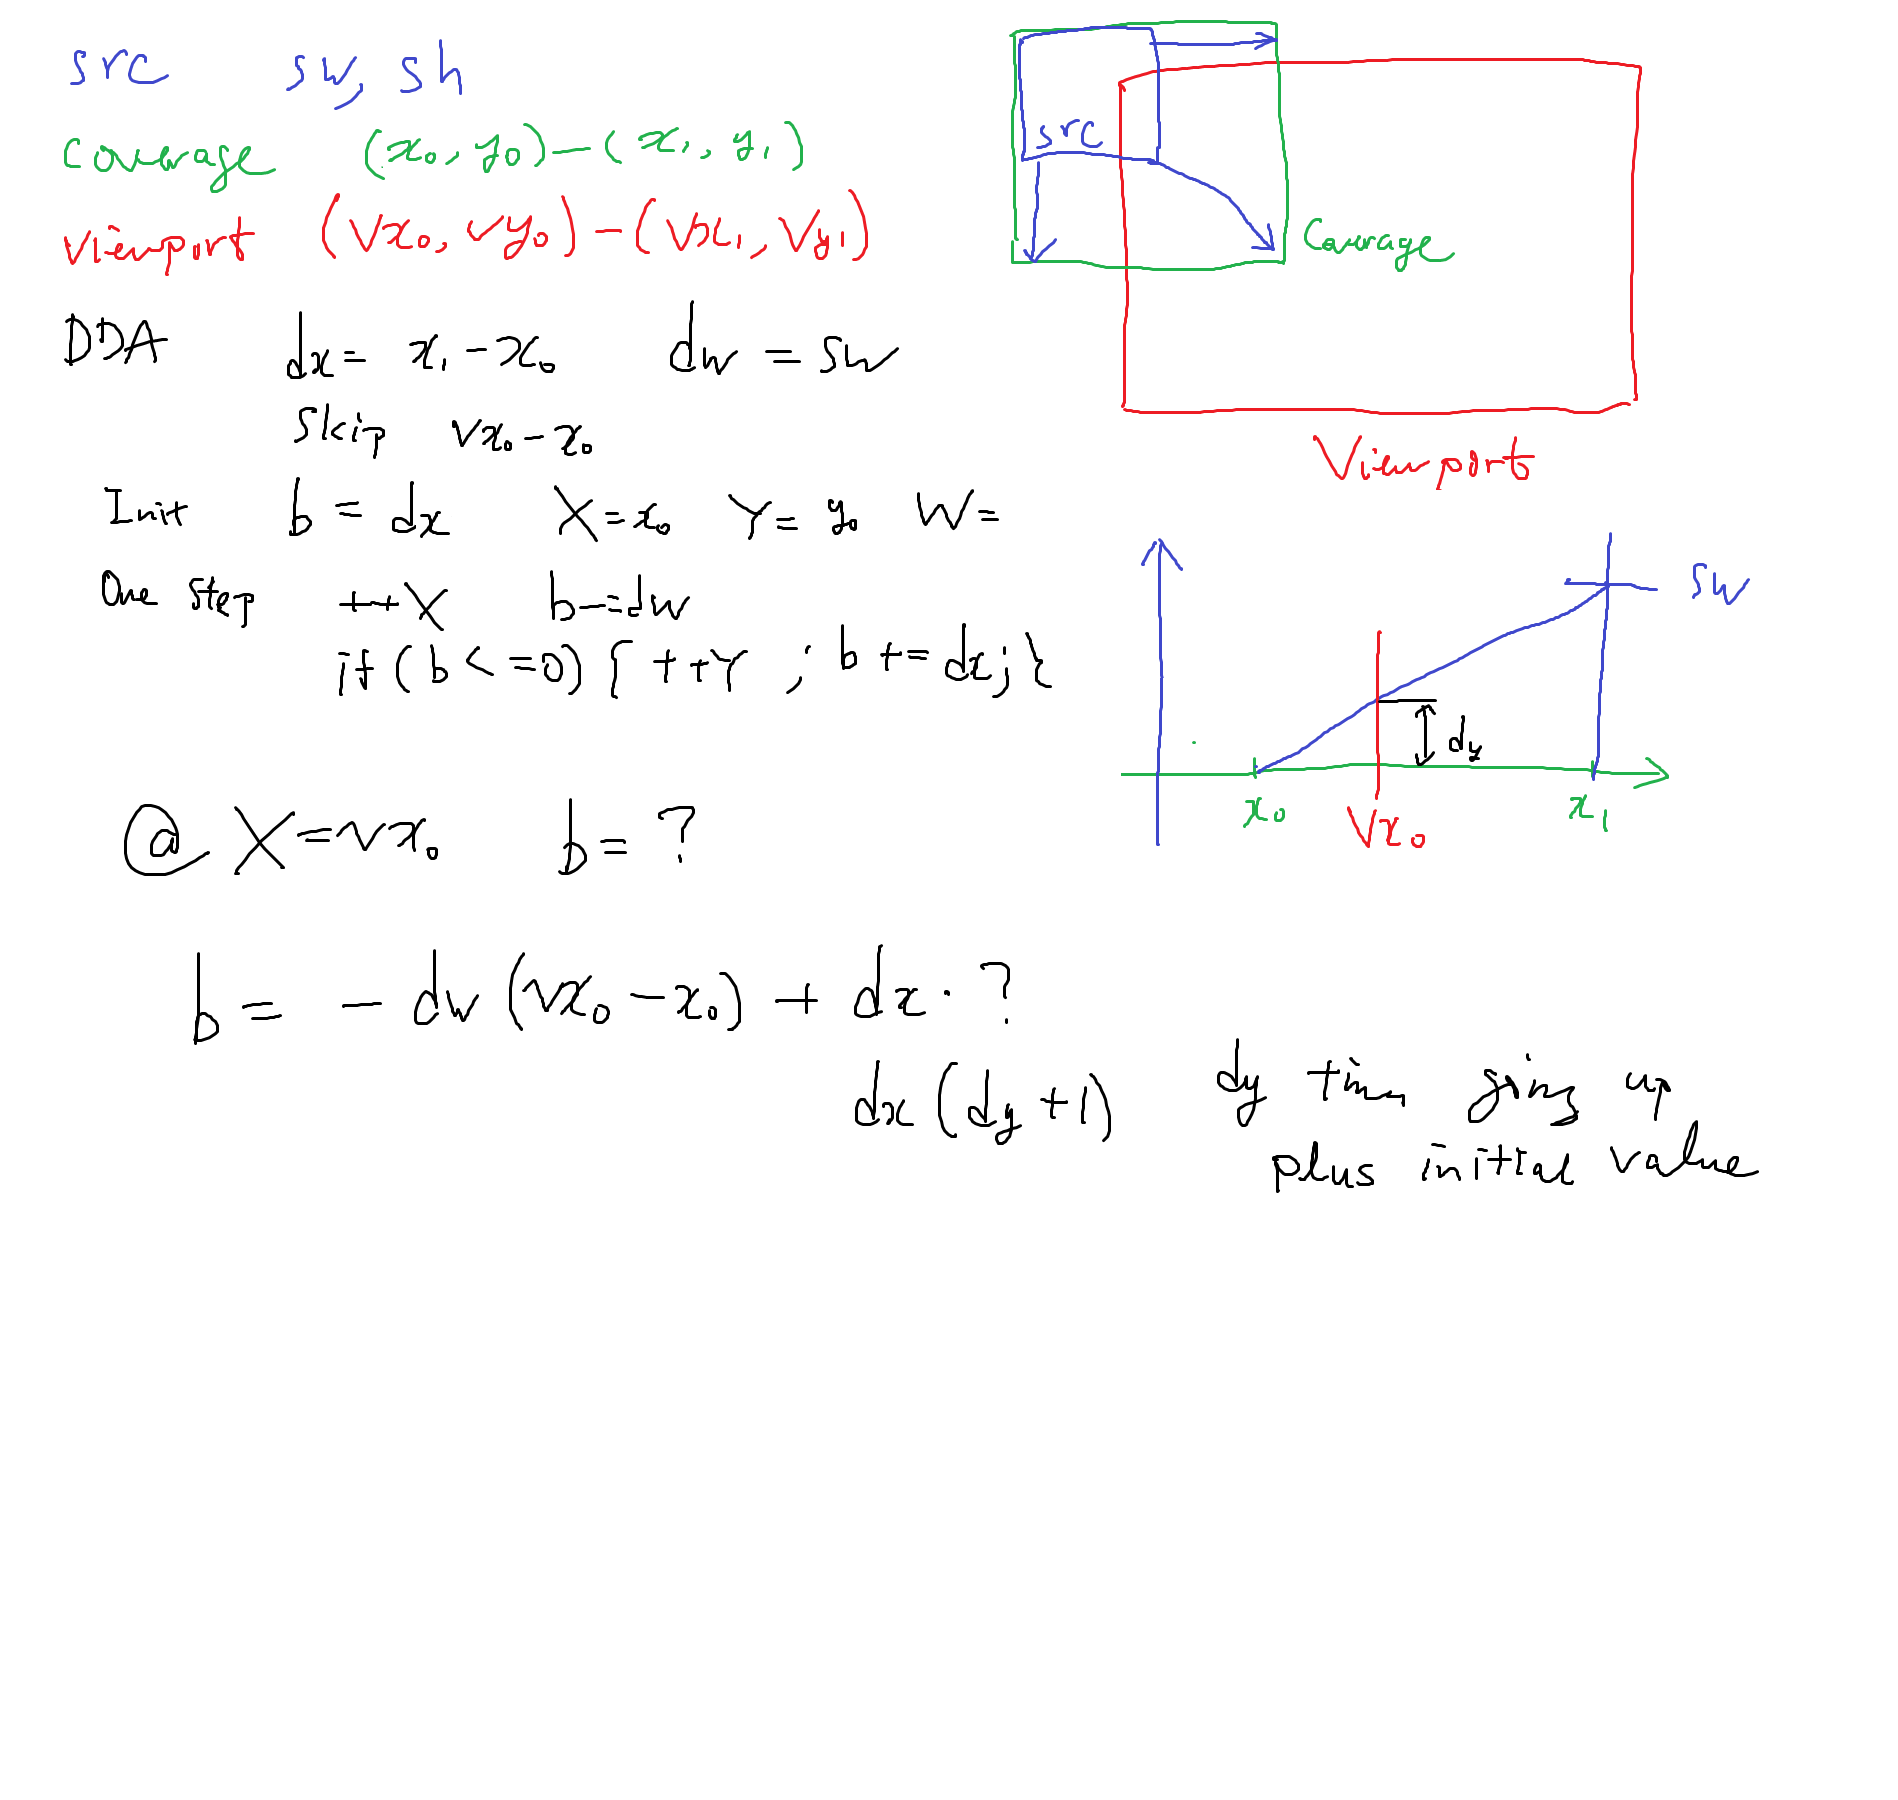 src sw, sh
coverage (x₀, y₀)—(x₁, y₁)
viewport (vx₀, vy₀)—(vx₁, vy₁)
DDA dx = x₁ - x₀ dw = sw
skip vx₀ - x₀
Init b = dx X = x₀ Y = y₀ W =
One step ++X b -= dw
if (b <= 0) { ++Y ; b += dx; }
@ X = vx₀ b = ?
b = - dw (vx₀ - x₀) + dx · ?
dx (dy + 1) dy times going up
plus initial value
src
Coverage
Viewport
sw
dy
x₀
Vx₀
x₁